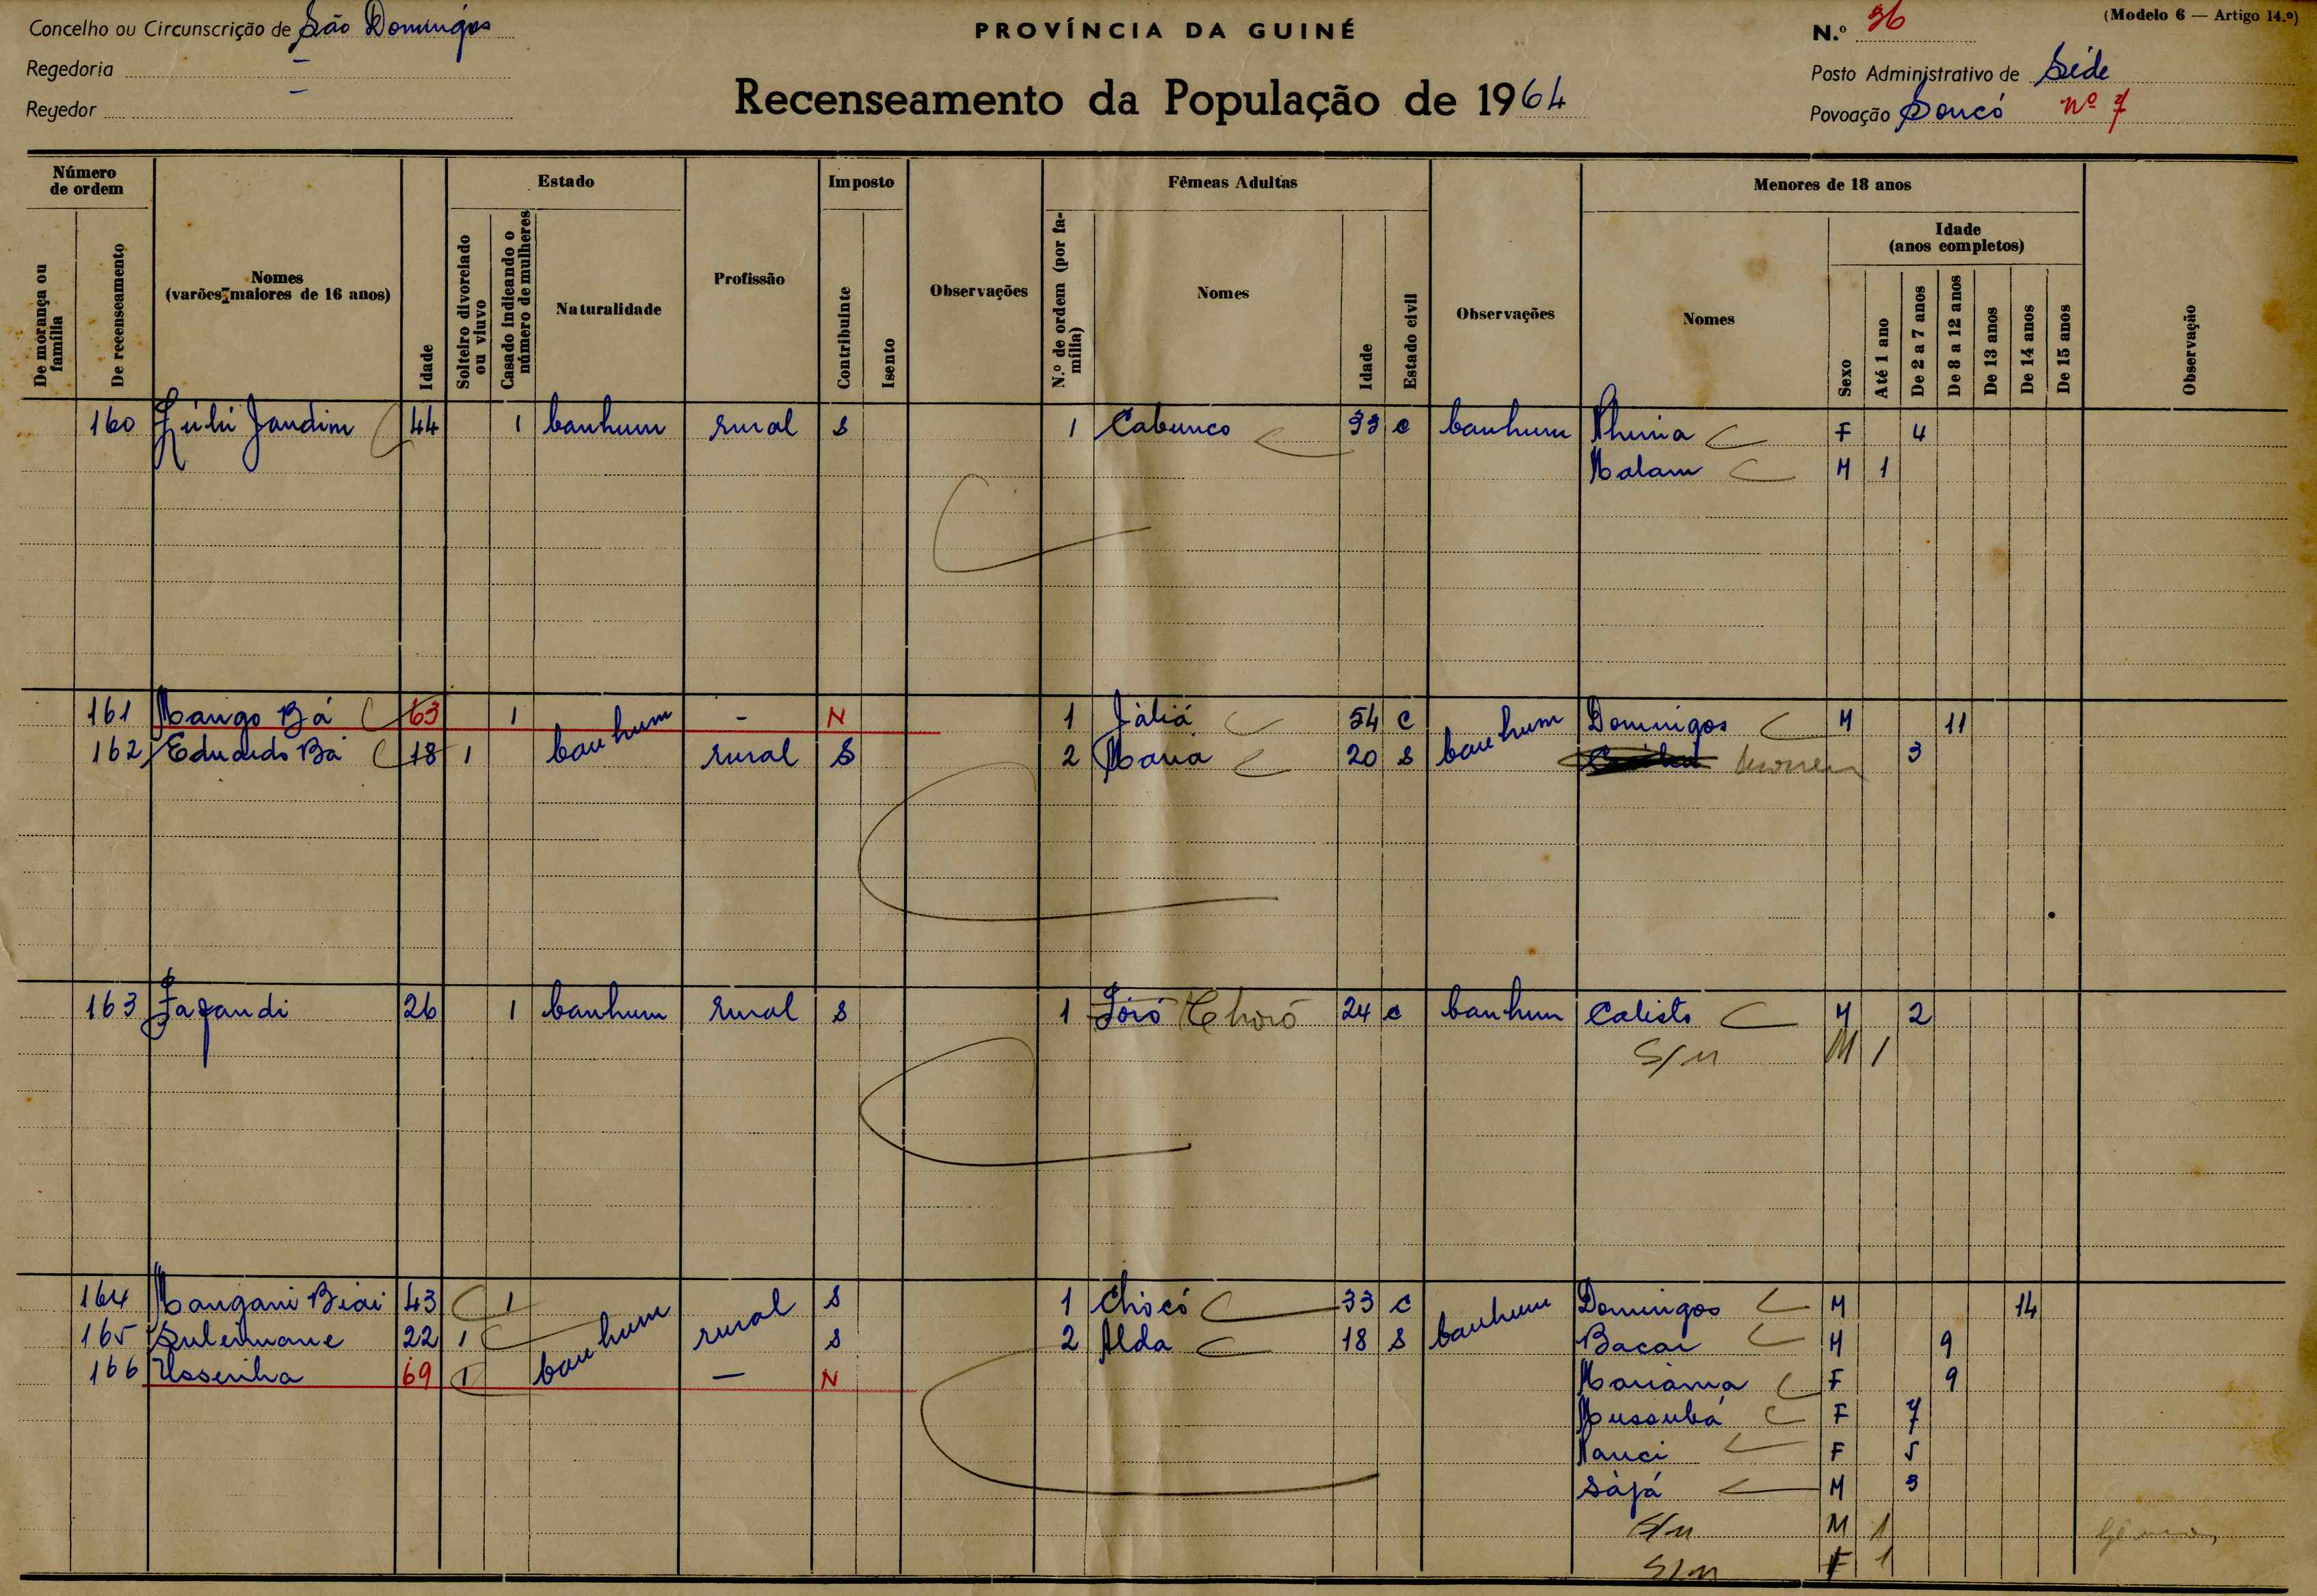 Concelho ou Circunscrição de São Domingos
Regedoria –
Regedor –
PROVÍNCIA DA GUINÉ
Recenseamento da População de 1964
(Modelo 6 — Artigo 14.º)
N.º 36
Posto Administrativo de Séde
Povoação Soucó nº 7
Número de ordem
De morança ou família
De recenseamento
Nomes
(varões maiores de 16 anos)
Idade
Estado
Solteiro divorciado ou viuvo
Casado indicando o número de mulheres
Naturalidade
Profissão
Imposto
Contribuinte
Isento
Observações
Fêmeas Adultas
N.º de ordem (por família)
Nomes
Idade
Estado civil
Observações
Menores de 18 anos
Nomes
Sexo
Idade
(anos completos)
Até 1 ano
De 2 a 7 anos
De 8 a 12 anos
De 13 anos
De 14 anos
De 15 anos
Observação
160 Jandim 44 1 banhum rural S 1 Cabunco 33 C banhum F 4
Malam M 1
161 Mango Bá 63 1 banhum – N 1 Jàliá 54 C banhum Domingos M 11
162 Eduardo Bá 18 1 rural S 2 Maria 20 S 3
163 26 1 banhum rural S 1 Joró Choró 24 C banhum Calisto M 2
S/n M 1
164 Mangani Biai 43 1 banhum rural S 1 Chocó 33 C banhum Domingos M 14
165 Suleimane 22 1 S 2 Alda 18 S Bacar M 9
166 69 1 — N Mariama F 9
Mussubá F 7
Nanci F 5
Sàjá M 3
S/n M 1
S/n F 1